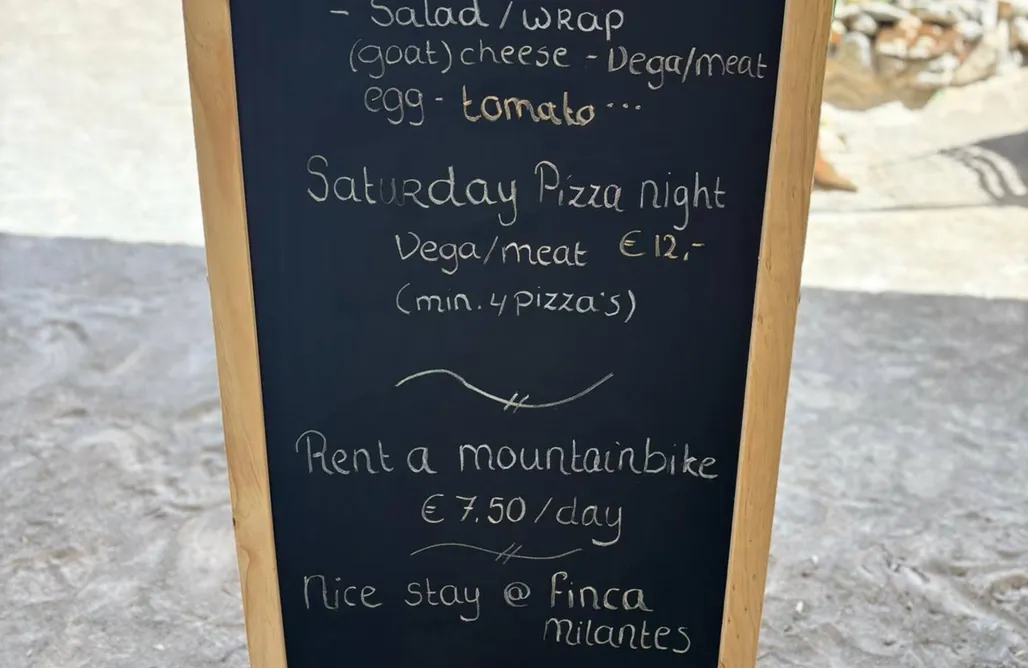 - Salad/wrap
(goat)cheese - Vega/meat
egg - tomato...
Saturday Pizza night
Vega/meat € 12,-
(min. 4 pizza's)
Rent a mountainbike
€ 7.50/day
Nice stay @ finca
milantes